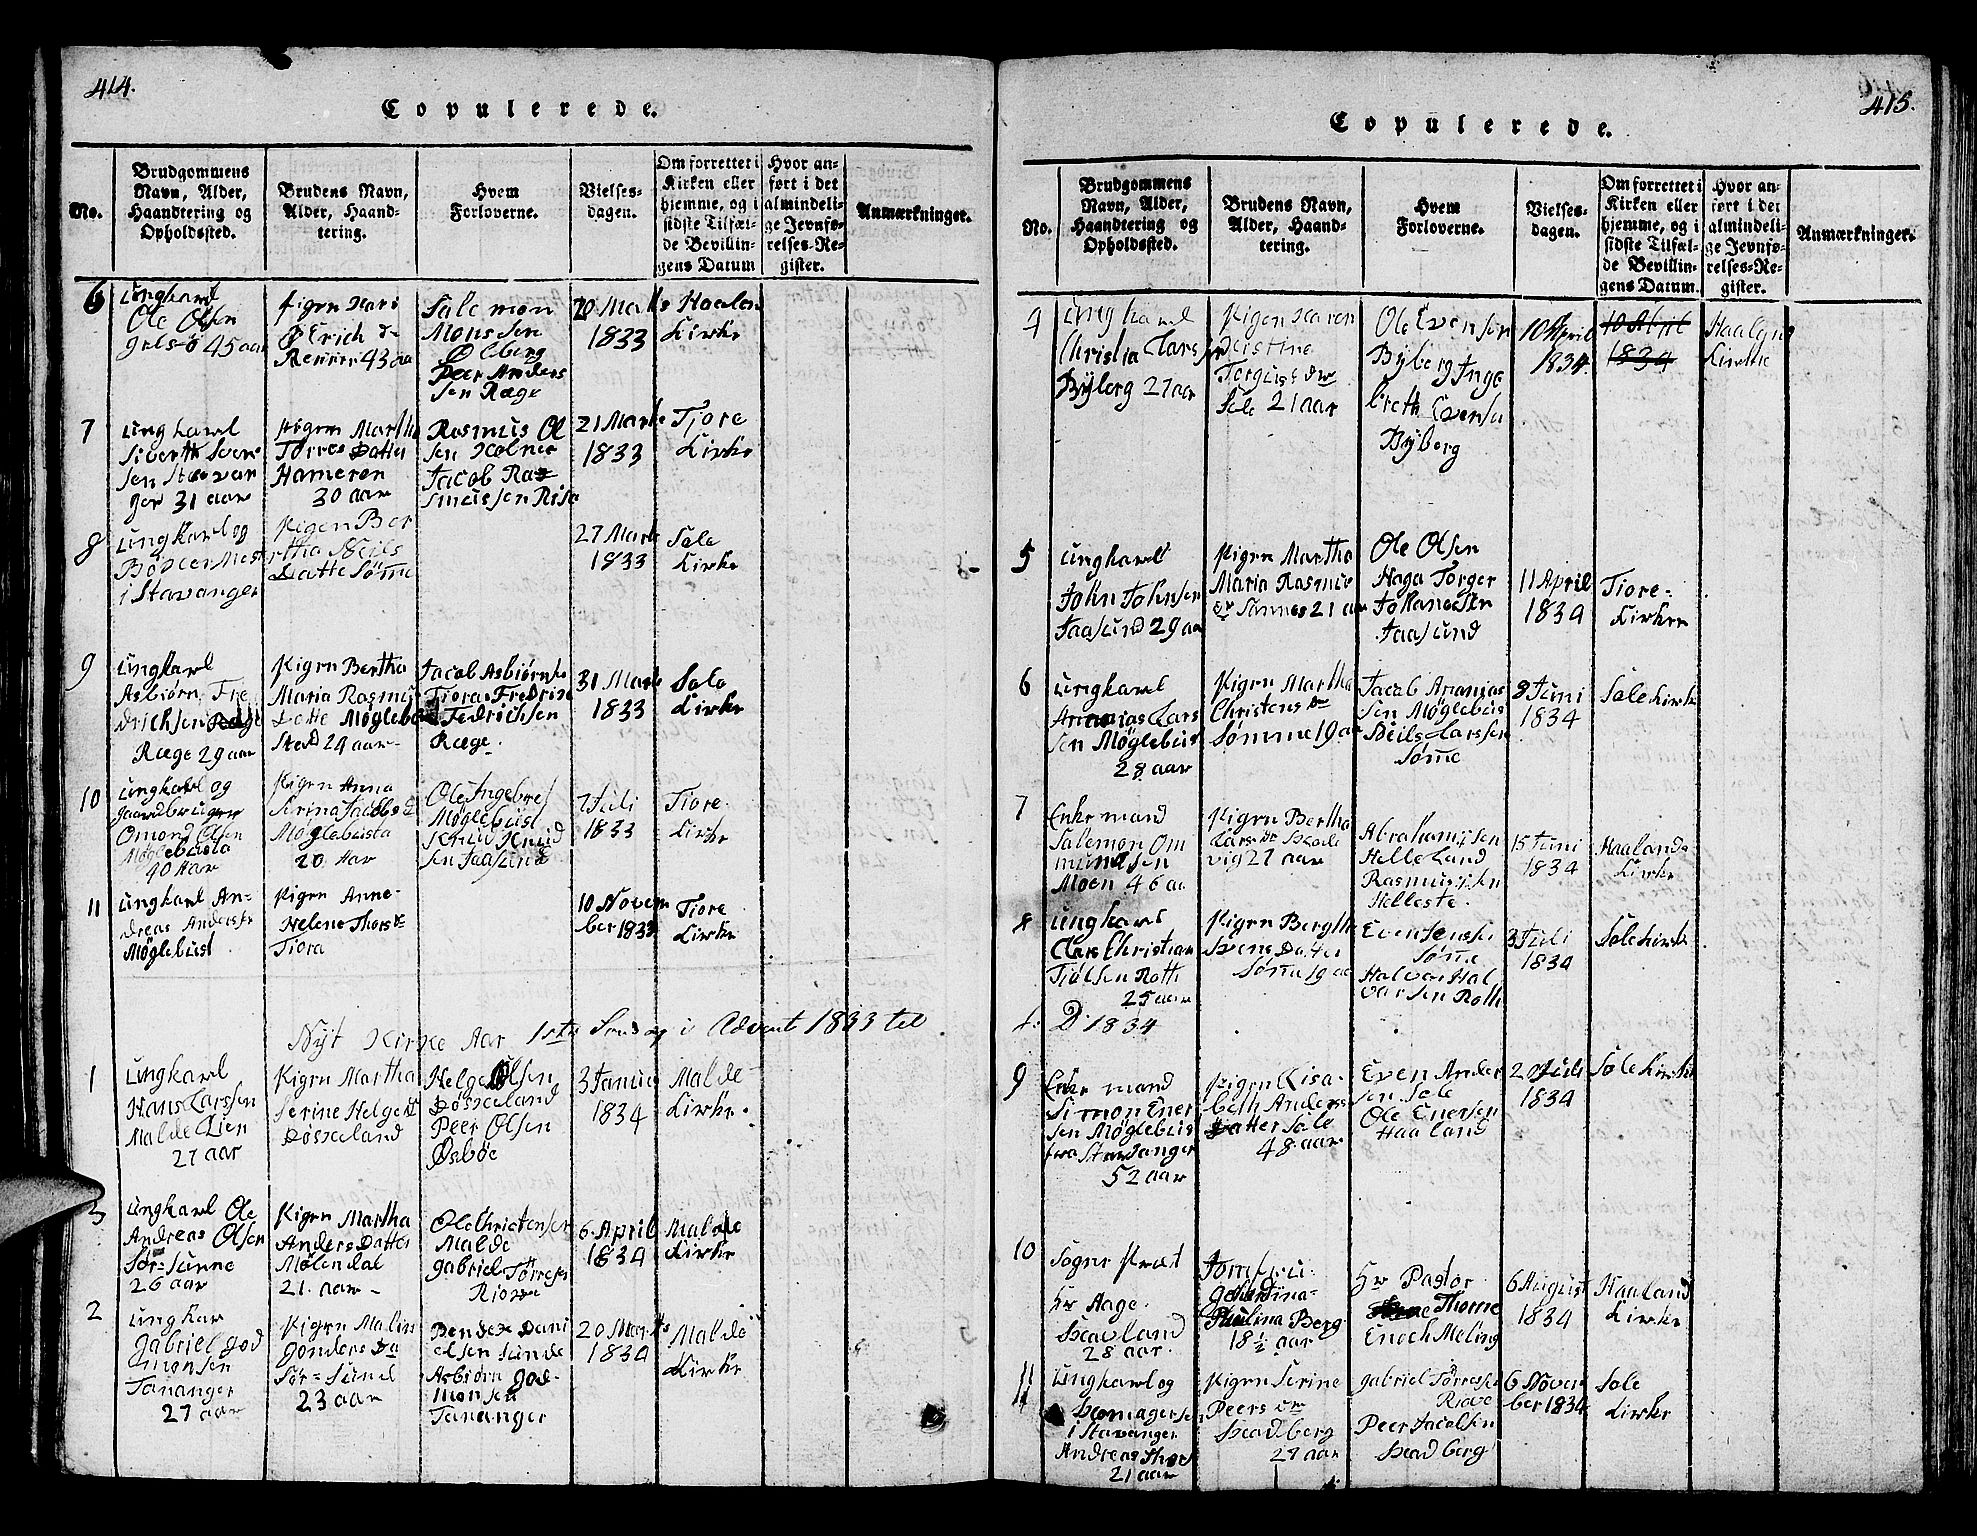 414.
Copulerede.
No.
Brudgommens
Navn, Alder,
Haandtering og
Opholdssted.
Brudens Navn,
Alder, Haand-
tering.
Hvem
Forloverne.
Vielses-
dagen.
Om forrettet i
Kirken eller
hjemme, og i
sidste Tilfæl-
de Bevillin-
gens Datum
Hvor an-
ført i det
almindeli-
ge Jevnfø-
relses-Re-
gister.
Anmærkninger.
6
ungkarl
Ole Olsen
gilsø 45 aar
Pigen Kari
Salemon
Monssen
Ølberg
Peer Anders
sen Ræge
20 Marts
1833
Haaland
Kirke
7
ungkarl
Siverth Sven
sen Stavan
ger 31 aar
Pigen Martha
Torres Datter
Hameren
30 aar
Rasmus Ol
sen Kolnes
Jacob Ra
smussen Risa
21 Marts
1833
Tjore
Kirke
8
ungkarl og
Bødker Mest
i Stavanger
Pigen Ber
rtha Neils
Datte Sømme
27 Marts
1833
Sole
Kirke
9
ungkarl
Asbiørn Fre
drichsen
Ræge 29 aar
Pigen Bertha
Maria Rasmus
Datte Møglebu
sted 24 aar
Jacob Asbiørns
Tiora Fredrik
Fedrichsen
Ræge.
31 Marts
1833
Sole
Kirke
10
ungkarl og
gaardbruger
Omond Olsen
Møglebusta
40 Aar
Pigen Anna
Serina Jacobs d
Møglebusta
20 Aar
Ole Ingebre
Møglebust
Knud Knud
sen Jaasund
7 Juli
1833
Tiore
Kirke
11
ungkarl An-
dreas Anders
Møglebust
Pigen Anne
Helene Thors
Tiora
10 Novem
ber 1833
Tiore
Kirke
Nyt Kirke Aar 1ste Sondag i Advent 1833 til
1
ungkarl
Hans Larssen
Malde Lien
27 aar
Pigen Martha
Serine Helges
Døsseland
Helge Olsen
Døsseland
Peer Olsen
Øsbøe
3 Januar
1834
Malde-
Kirke.
3
ungkarl Ole
Andreas Olsen
Sør-Sunne
26 aar
Pigen Martha
Anders Datter
Mølendal
21. aar
Ole Christensen
Malde
gabriel Tørresen
6 April
1834
Malde
Kirke
2
ungkar
gabriel god
monsen
Tananger
27 aar
Pigen Malin
gonders Da
Sør-Sund
23 aar
Bendix Dani
elsen Sunde
Asbiørn god-
monsen
Tananger
20 Marts
1834
Malde
Kirke
415.
Copulerede.
No.
Brudgommens
Navn, Alder,
Haandtering og
Opholdssted.
Brudens Navn,
Alder, Haand-
tering.
Hvem
Forloverne.
Vielses-
dagen.
Om forrettet i
Kirken eller
hjemme, og i
sidste Tilfæl-
de Bevillin-
gens Datum.
Hvor an-
ført i det
almindeli-
ge Jevnfø-
relses-Re-
gister.
Anmærkninger.
4
ungkarl
Christia Lars
Byberg 27 aar
Pigen Karen
Justine
Sole 21 aar
Ole Evensen
Byberg Inge
breth Evensen
Byberg
10 April
1834.
10 April
1834
Haaland
Kirke
5
ungkarl
John Johnsen
Jaasund 29 aar
Pigen Martha
Maria Rasmus
dr Sannes 21 aar
Ole Olsen
Haga Torger
Johanesen
Jaasund
11 April
1834
Tiore-
Kirke
6
ungkarl
Ananias Lars
sen Møglebust
28 aar
Pigen Martha
Christens dr
Sømme 19 aar
Jacob Ananias
sen Møglebust
Neils Larssen
Sømme
8 Juni
1834
Sole Kirke
7
Enkemand
Salemon Om
mundsen
Moen 46 aa
Pigen Bertha
vig 27 aar
Abrahamsen
Helleland
Rasmussen
Helleste.
15 Juni
1834
Haaland-
Kirke
8
ungkarl
Clas Christian
Tiølsen Roth
25 aar
Pigen Bergtha
Svens Datter
Sømme 19 aar
Even
Sømme
Halvor Hal
varsen Roth
3 Juli
1834
Sole Kirke
D. 1834
9
Enkemand
Simon Ener
sen Møglebust
fra Stavanger
52 aar
Pigen Elisa-
beth Anders
Datter Sole
48 aar
Even Ander
sen Sole
Ole Enersen
Haaland
20 Juli
1834
Sole Kirke
10
Sogne Præst
Hr Aage.
Skavland
28 aar.
Jomfru
Paulina Berg
18½ aar
Hr Pastor
Thorne
Enoch Meling
6 August
1834
Haaland
Kirke
11
ungkarl og
Skomagersen
i Stavanger
Andreas
21 aar
Pigen Serine
Peers dr
Skadberg
27 aar
gabriel Tørresen
Peer Jacobsen
Skadberg
6 Novem
ber 1834
Sole
Kirke